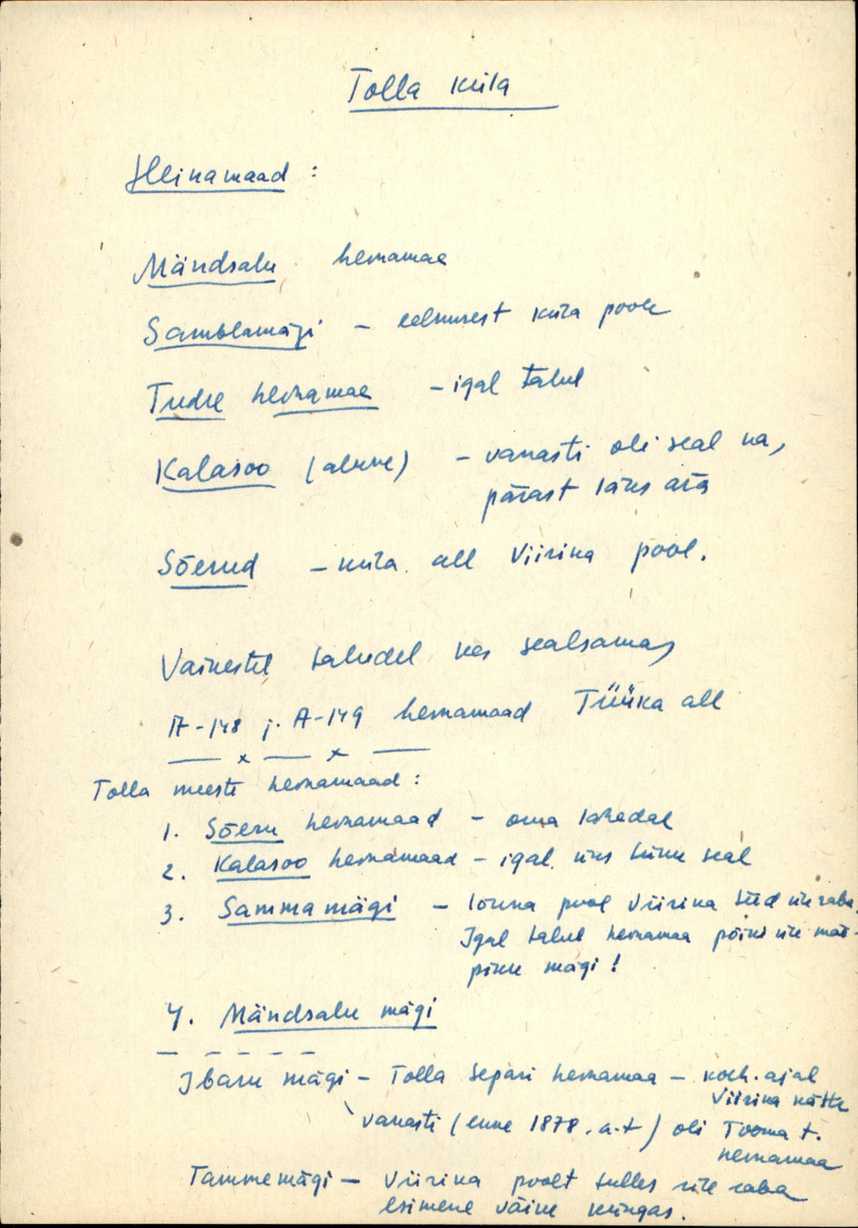 Tolla küla
Heinamaad :
Mändsalu heinamaa
Samblamägi – eelmisest küla poole
Tudre heinamaa – igal talul
Kalasoo (alune) – vanasti oli seal ka,
pärast läks ära
Sõerud – küla all Viirika pool.
Väikestel taludel kes sealsamas
A-148 j. A-149 heinamaad Tüüka all
— x — x —
Tolla meeste heinamaad :
1. Sõeru heinamaad – oma lahedal
2. Kalasoo heinamaad – igal üks tükk seal
3. Samma mägi – lõuna pool Viirika teed üle raba.
Igal talul heinamaa põiki üle
mägi !
4. Mändsalu mägi
– – – – –
Ibaru mägi – Tolla Separi heinamaa – kolh. ajal
Viirika kätte
vanasti (enne 1878. a.t) oli Tooma t.
heinamaa
Tammemägi – Viirika poolt tulles üle raba
esimene väike küngas.